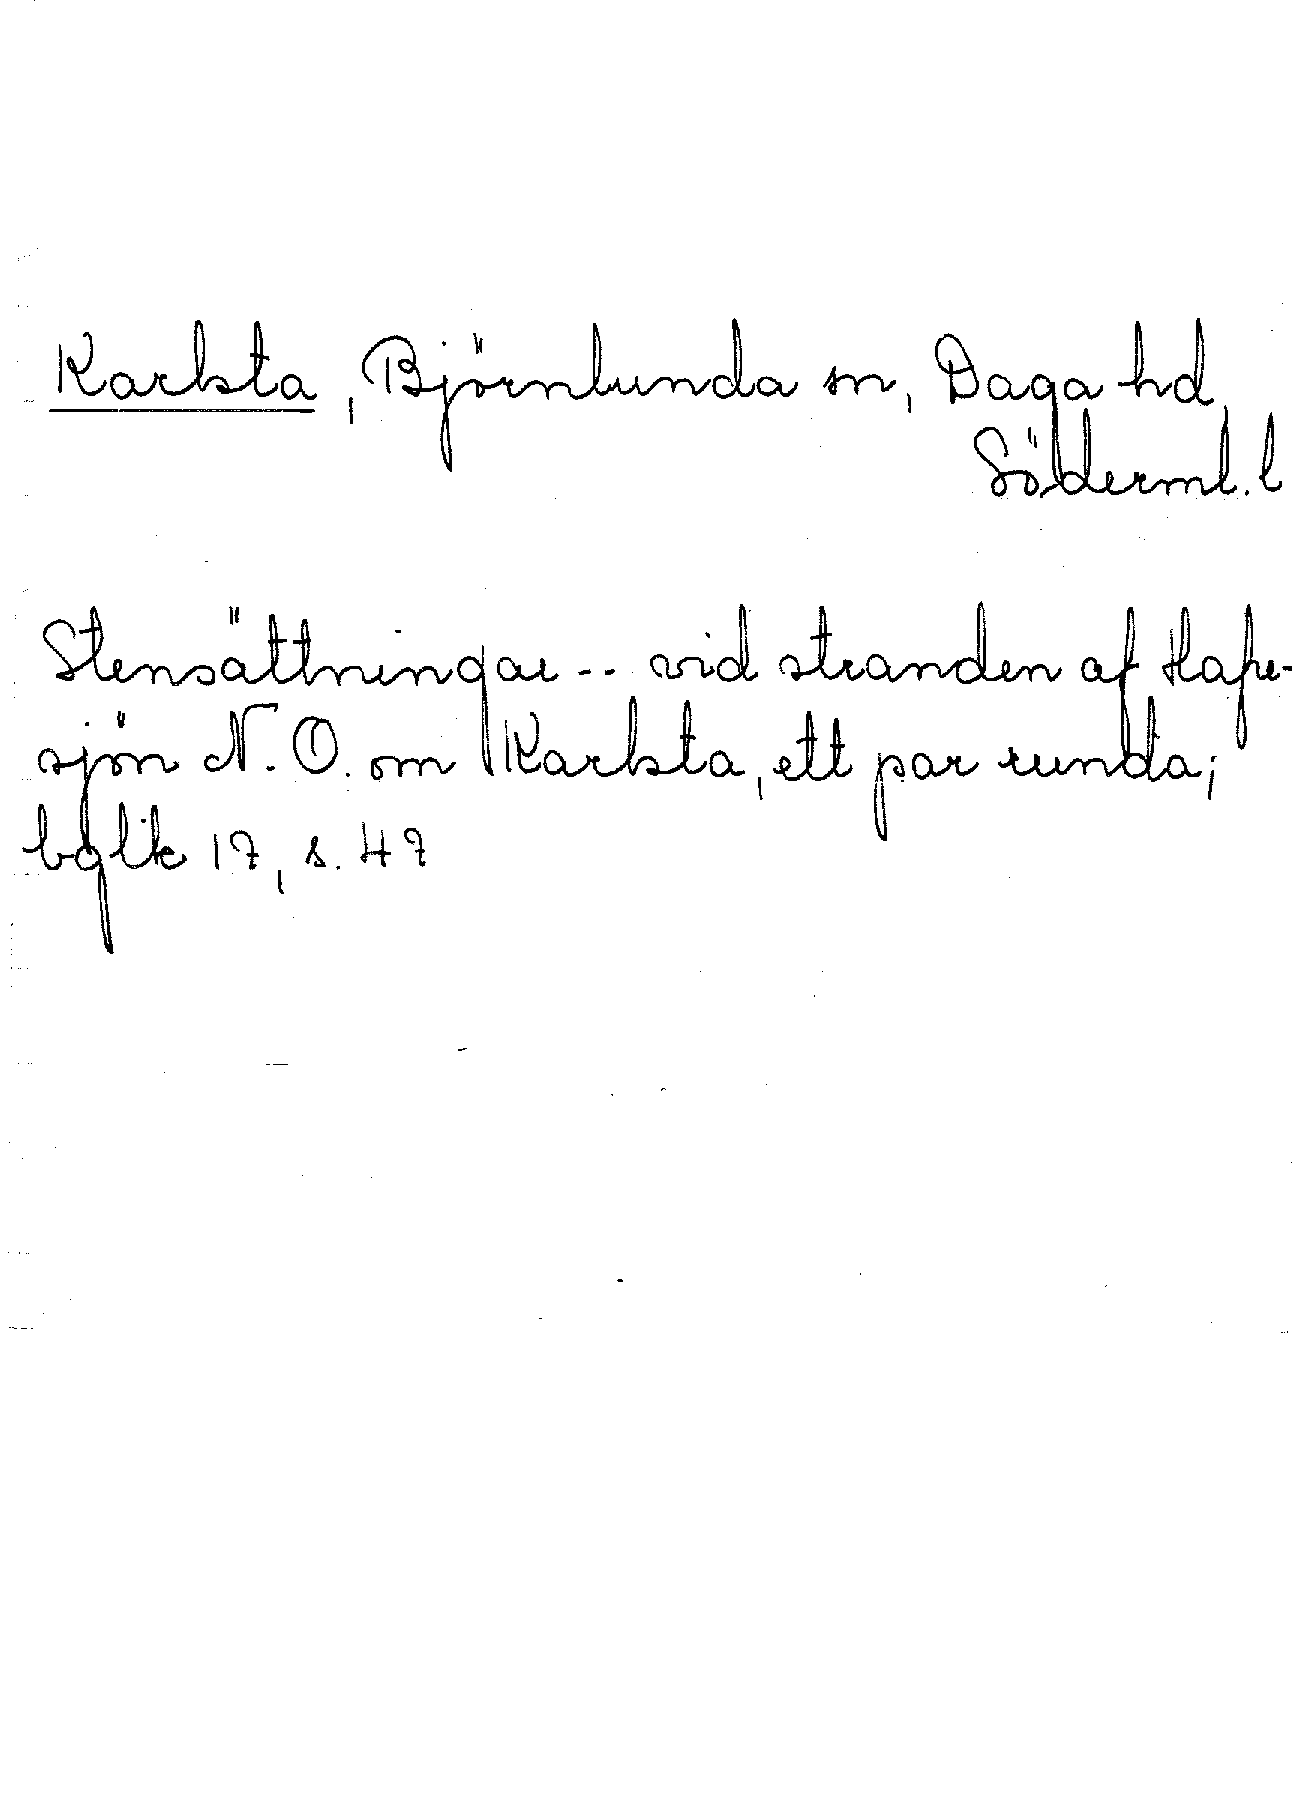 Karlsta, Björnlunda sn, Daga hd
Söderml. l
Stensättningar -- vid stranden af
sjön N. O. om Karlsta, ett par runda;
17, s. 47